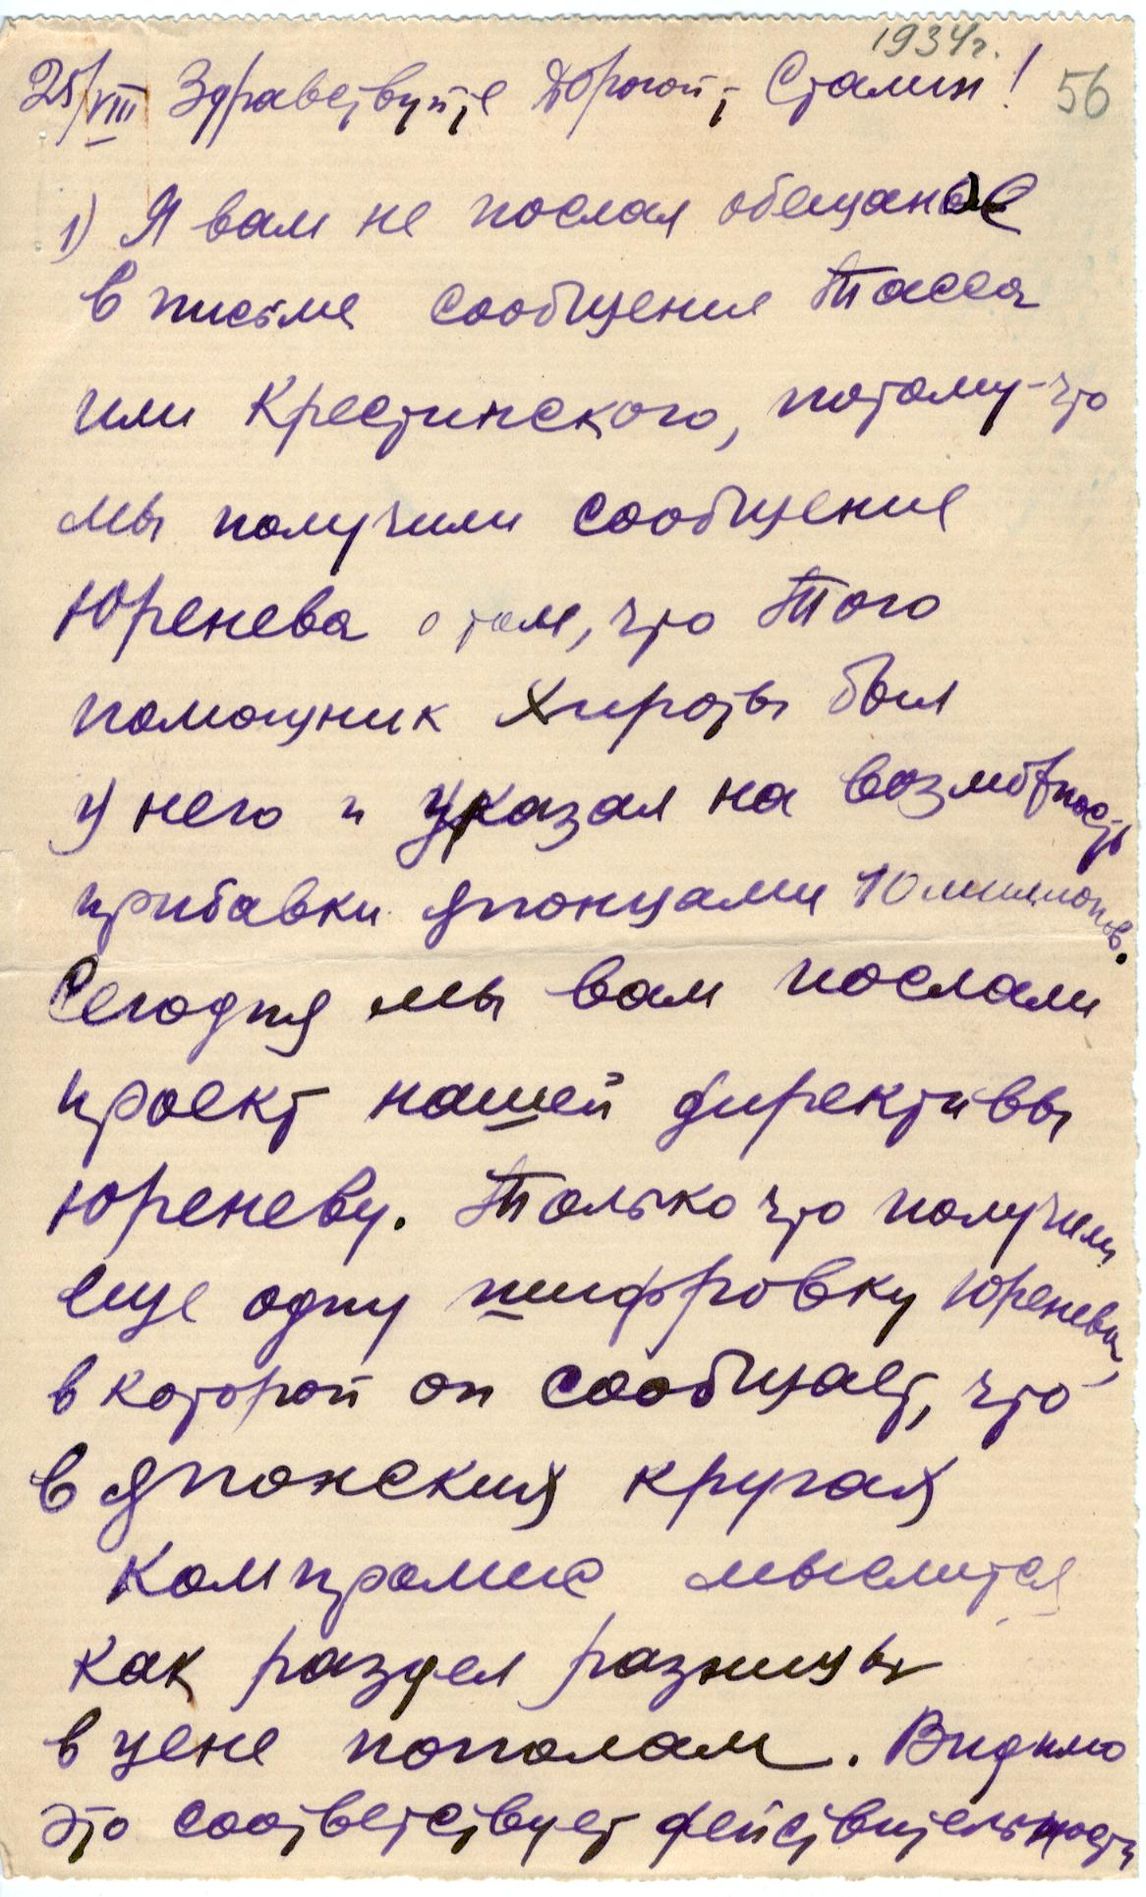 1934г.
25/VIII Здравствуйте Дорогой, Сталин! 56
1) Я вам не послал обещаное
в письме сообщение Тасса
или Крестинского, потому-что
мы получили сообщение
Юренева о том, что Того
помощник Хироты был
у него и указал на возможность
прибавки японцами 10 миллионов.
Сегодня мы вам послали
проект нашей директивы
Юреневу. Только что получили
еще одну шифровку Юренева,
в которой он сообщает, что
в японских кругах
компромис мыслится
как раздел разницы
в цене пополам. Видимо
это соответствует действительности